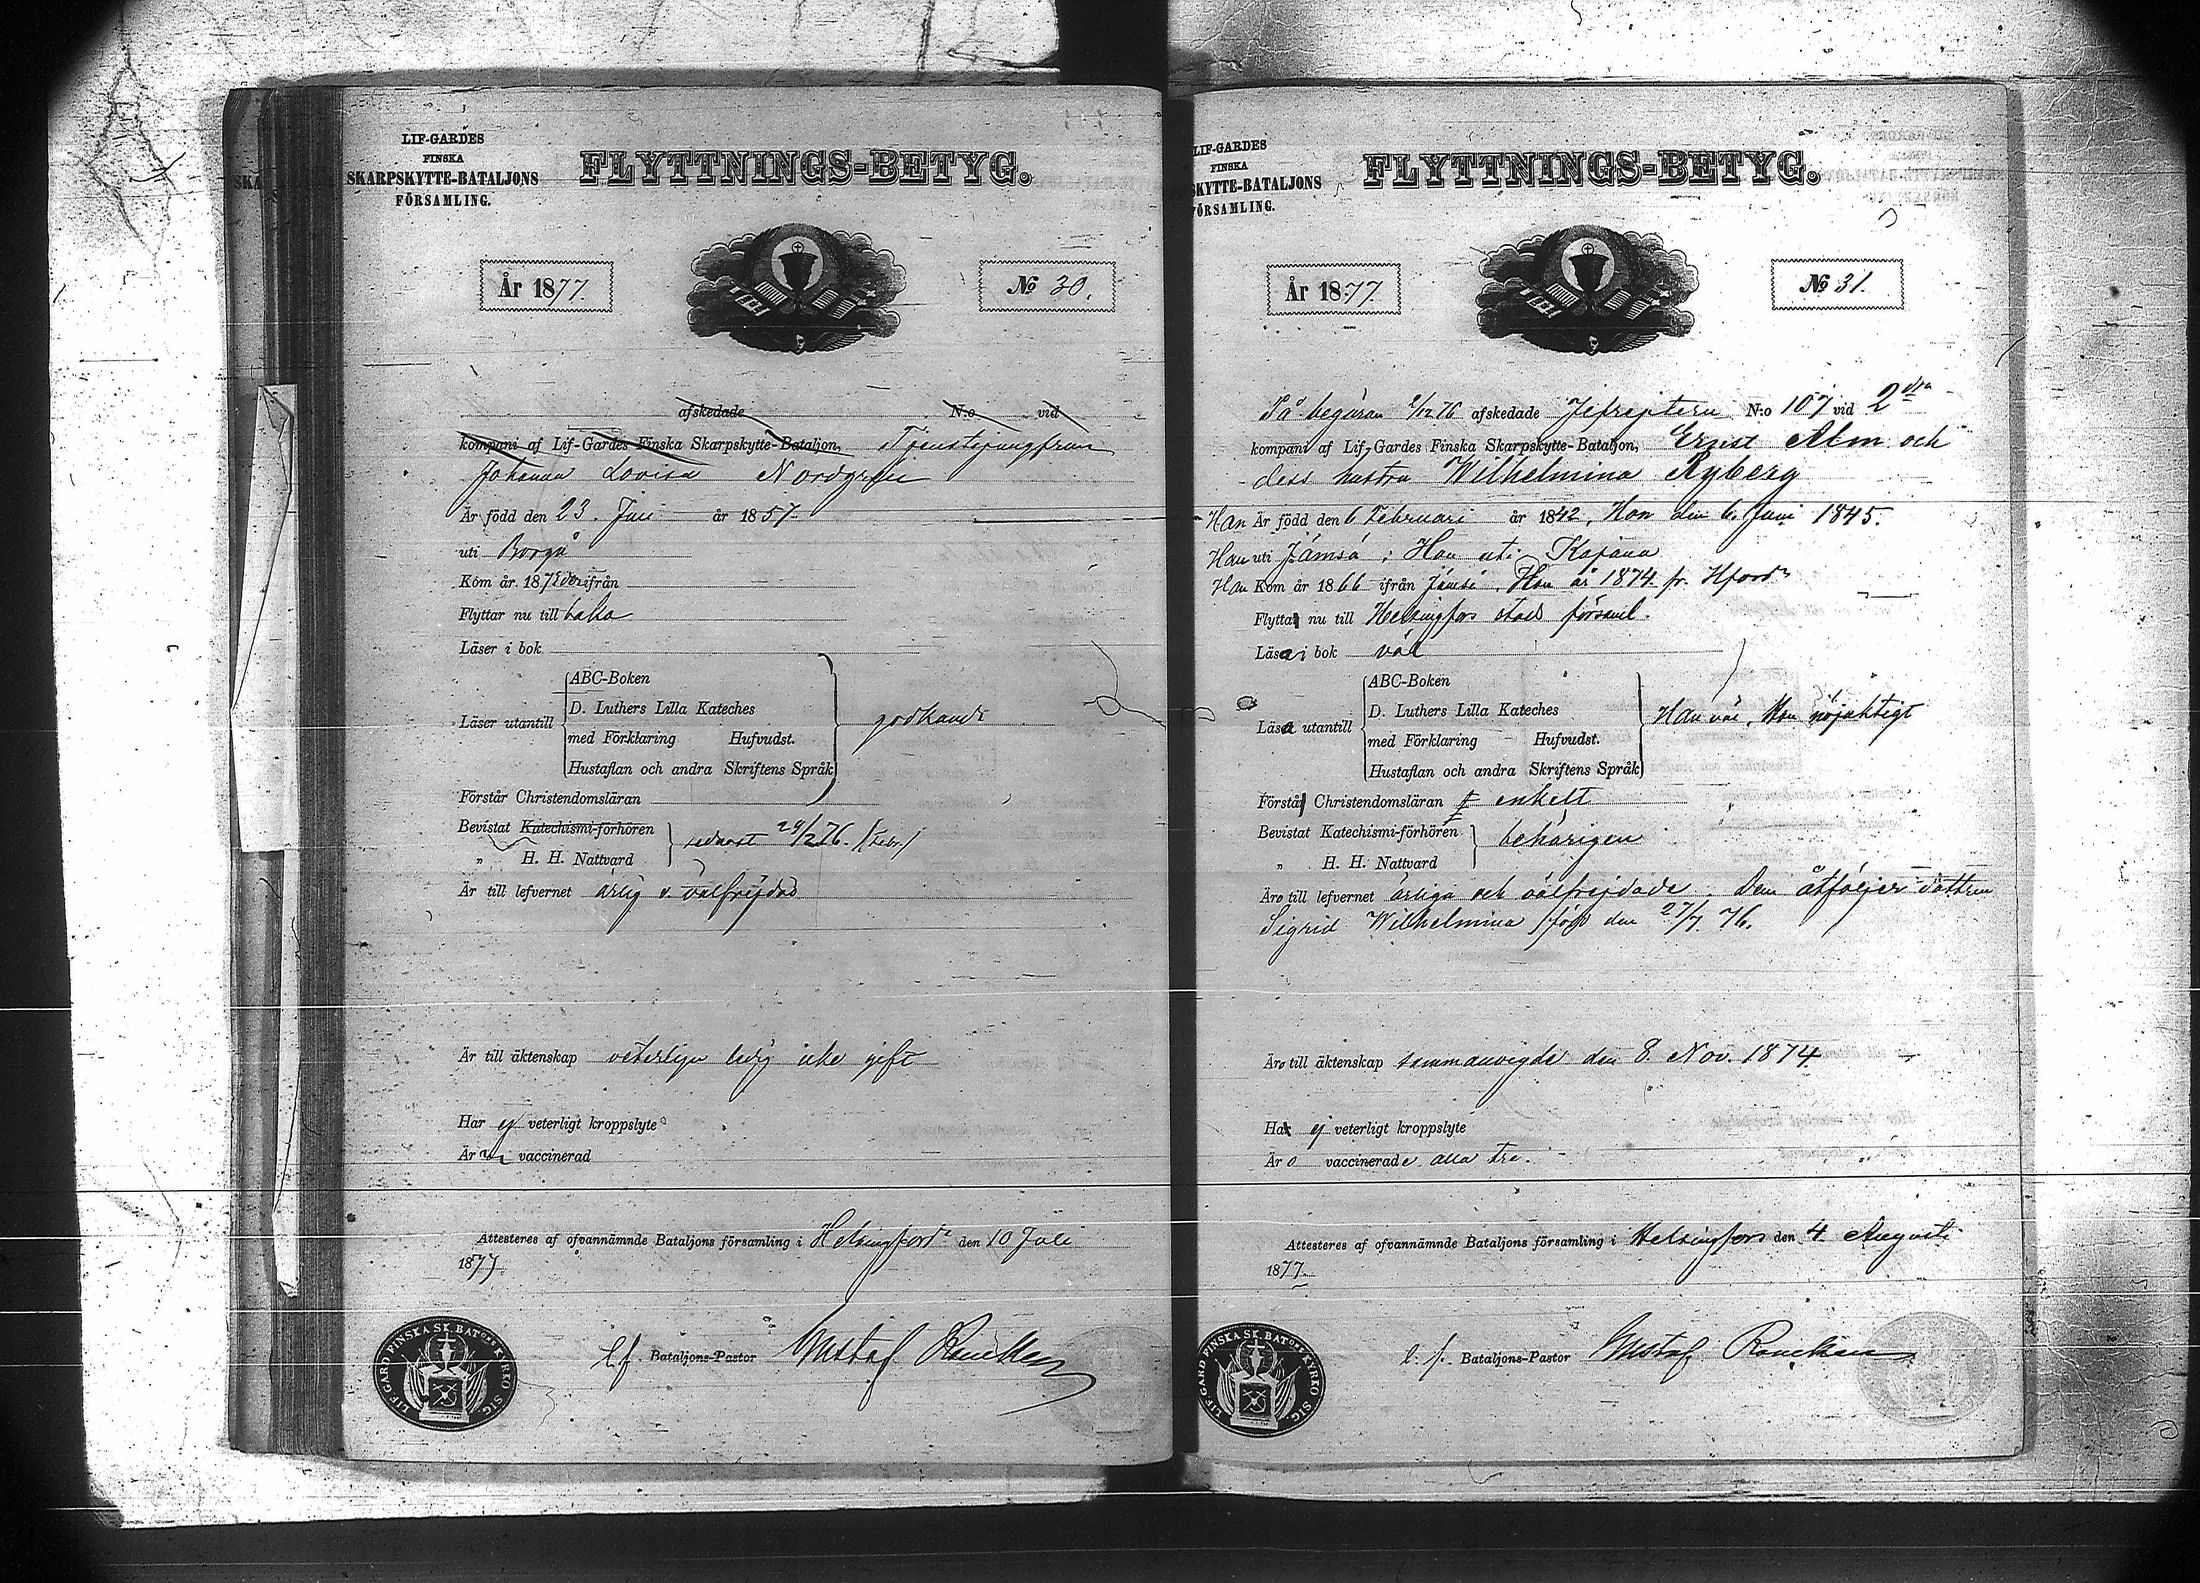 LIF-GARDES
FINSKA
SKARPSKYTTE-BATALJONS
FÖRSAMLING.
FLYTTNINGS-BETYG.
År 1877.
No 30.
afskedade N:o vid
kompani af Lif-Gardes Finska Skarpskytte-Bataljon, Tjenstejungfrun
Johanna Lovisa Nordgren
Är född den 23. Juni år 1857
uti Borgå
Kom år 187 ifrån
Flyttar nu till baka
Läser i bok
ABC-Boken
D. Luthers Lilla Kateches
Läser utantill godkändt
med Förklaring Hufvudst.
Hustaflan och andra Skriftens Språk
Förstår Christendomsläran
Bevistat Katechismi-förhören
" H. H. Nattvard senast 24/2 76.
Är till lefvernet ärlig o. välfrejdad
Är till äktenskap veterligen ledig icke gift
Har ej veterligt kroppslyte
Är vaccinerad
Attesteres af ofvannämnde Bataljons församling i Helsingfors den 10 Juli
1877.
t.f. Bataljons-Pastor Gustaf Rancken
LIF.GARD FINSKA SK.BATONS KYRKO SIG.
LIF-GARDES
FINSKA
SKYTTE-BATALJONS
FÖRSAMLING.
FLYTTNINGS-BETYG.
År 1877.
No 31.
På begäran 9/12 76 afskedade Jefrejtern N:o 107 vid 2dra
kompani af Lif-Gardes Finska Skarpskytte-Bataljon, Ernst Alm och
dess hustru Wilhelmina Ryberg
Han Är född den 6 Februari år 1842, Hon den 6. Juni 1845.
Han uti Jämsä; Hon uti Kajana
Han Kom år 1866 ifrån Jämsä. Hon år 1874 fr. Hfors
Flytta nu till Helsingfors stads församl.
Läsa i bok väl
ABC-Boken
D. Luthers Lilla Kateches
Läsa utantill Han väl, Hon nöjaktigt
med Förklaring Hufvudst.
Hustaflan och andra Skriftens Språk
Förstå Christendomsläran enkelt
Bevistat Katechismi-förhören behörigen
" H. H. Nattvard
Äro till lefvernet ärliga och välfrejdade. Dem åtföljer dottren
Sigrid Wilhelmina född den 27/7 76.
Äro till äktenskap sammanvigde den 8. Nov. 1874
Ha ej veterligt kroppslyte
Äro vaccinerade alla tre.
Attesteres af ofvannämnde Bataljons församling i Helsingfors den 4 Augusti
1877.
t.f. Bataljons-Pastor Gustaf Rancken
LIF.GARD FINSKA SK.BATONS KYRKO SIG.